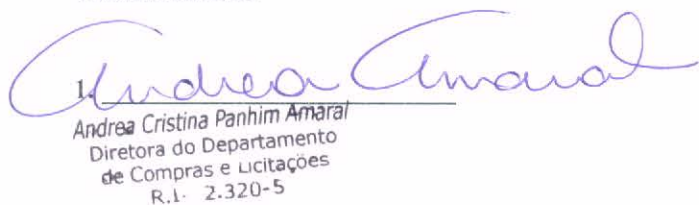 Andrea Amaral
1.
Andrea Cristina Panhim Amaral
Diretora do Departamento
de Compras e Licitações
R.I. 2.320-5